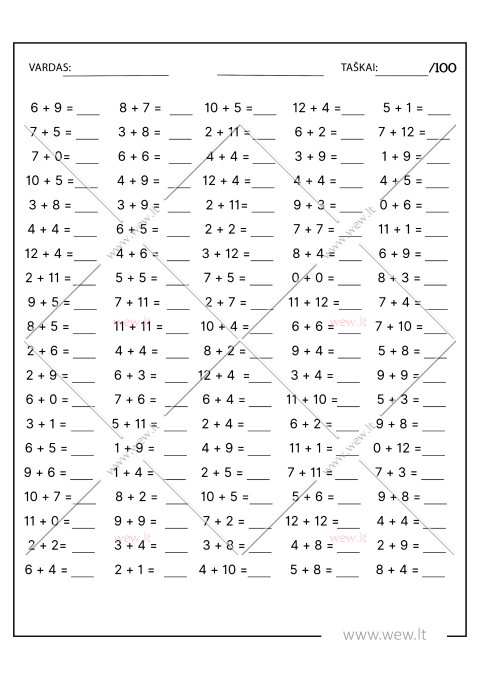 VARDAS:____________ ____________ TAŠKAI:________/100
6 + 9 = ___ 8 + 7 = ___ 10 + 5 = ___ 12 + 4 = ___ 5 + 1 = ___
7 + 5 = ___ 3 + 8 = ___ 2 + 11 = ___ 6 + 2 = ___ 7 + 12 = ___
7 + 0= ___ 6 + 6 = ___ 4 + 4 = ___ 3 + 9 = ___ 1 + 9 = ___
10 + 5= ___ 4 + 9 = ___ 12 + 4 = ___ 4 + 4 = ___ 4 + 5 = ___
3 + 8 = ___ 3 + 9 = ___ 2 + 11= ___ 9 + 3 = ___ 0 + 6 = ___
4 + 4 = ___ 6 + 5 = ___ 2 + 2 = ___ 7 + 7 = ___ 11 + 1 = ___
www.wew.lt www.wew.lt
12 + 4 = ___ 4 + 6 = ___ 3 + 12 = ___ 8 + 4 = ___ 6 + 9 = ___
2 + 11 = ___ 5 + 5 = ___ 7 + 5 = ___ 0 + 0 = ___ 8 + 3 = ___
9 + 5 = ___ 7 + 11 = ___ 2 + 7 = ___ 11 + 12 = ___ 7 + 4 = ___
wew.lt wew.lt
8 + 5 = ___ 11 + 11 = ___ 10 + 4 = ___ 6 + 6 = ___ 7 + 10 = ___
2 + 6 = ___ 4 + 4 = ___ 8 + 2 = ___ 9 + 4 = ___ 5 + 8 = ___
2 + 9 = ___ 6 + 3 = ___ 12 + 4 = ___ 3 + 4 = ___ 9 + 9 = ___
6 + 0 = ___ 7 + 6 = ___ 6 + 4 = ___ 11 + 10 = ___ 5 + 3 = ___
3 + 1 = ___ 5 + 11 = ___ 2 + 4 = ___ 6 + 2 = ___ 9 + 8 = ___
6 + 5 = ___ 1 + 9 = ___ 4 + 9 = ___ 11 + 1 = ___ 0 + 12 = ___
www.wew.lt www.wew.lt
9 + 6 = ___ 1 + 4 = ___ 2 + 5 = ___ 7 + 11 = ___ 7 + 3 = ___
10 + 7 = ___ 8 + 2 = ___ 10 + 5 = ___ 5 + 6 = ___ 9 + 8 = ___
11 + 0 = ___ 9 + 9 = ___ 7 + 2 = ___ 12 + 12 = ___ 4 + 4 = ___
wew.lt wew.lt
2 + 2= ___ 3 + 4 = ___ 3 + 8 = ___ 4 + 8 = ___ 2 + 9 = ___
6 + 4 = ___ 2 + 1 = ___ 4 + 10 = ___ 5 + 8 = ___ 8 + 4 = ___
www.wew.lt